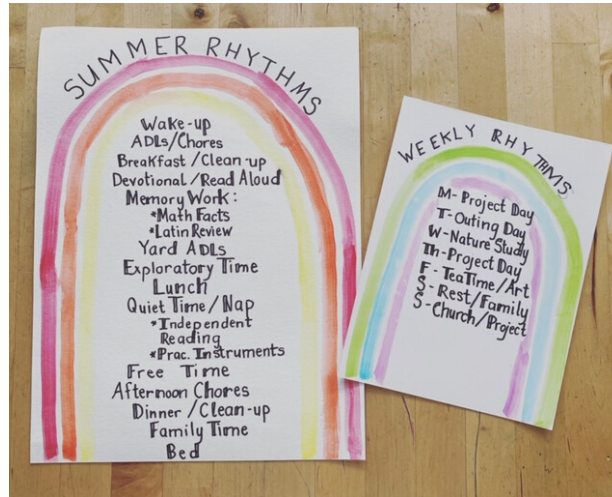 SUMMER RHYTHMS
Wake-up
ADLs/Chores
Breakfast/Clean-up
Devotional/Read Aloud
Memory Work:
*Math Facts
*Latin Review
Yard ADLs
Exploratory Time
Lunch
Quiet Time/Nap
*Independent
Reading
*Prac. Instruments
Free Time
Afternoon Chores
Dinner/Clean-up
Family Time
Bed
WEEKLY RHYTHMS
M-Project Day
T-Outing Day
W-Nature Study
Th-Project Day
F-Tea Time/Art
S-Rest/Family
S-Church/Project